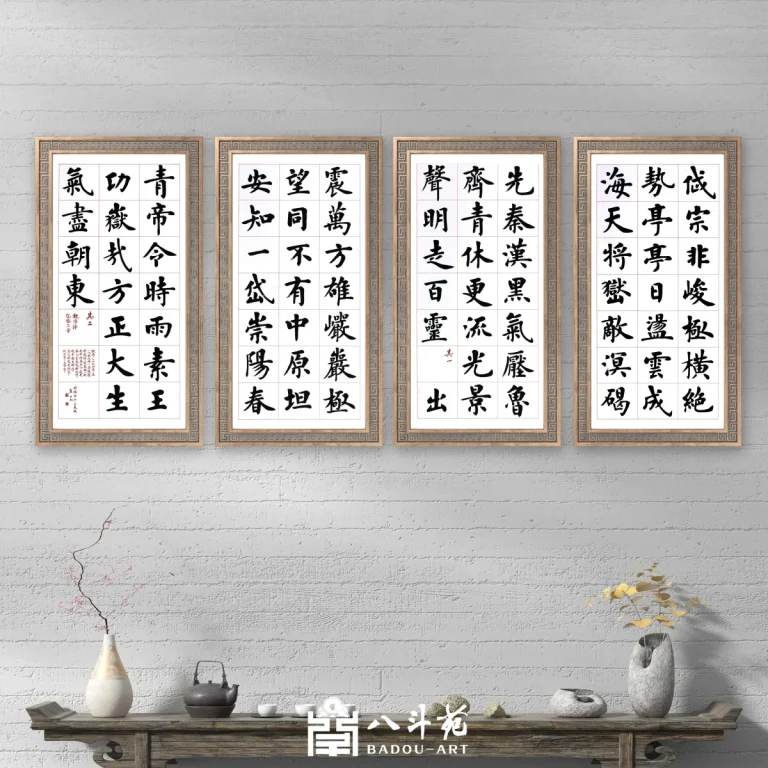 岱宗非峻極橫絕
勢亭亭日盪雲成
海天將嶽敵溟碣
先秦漢黑氣壓魯
齊青休更流光景
聲明走百靈 其一 出
震萬方雄巖嚴極
望同不有中原坦
安知一岱崇陽春
青帝令時雨素王
功嶽哉方正大生
氣盡朝東 其二
八斗苑
BADOU-ART